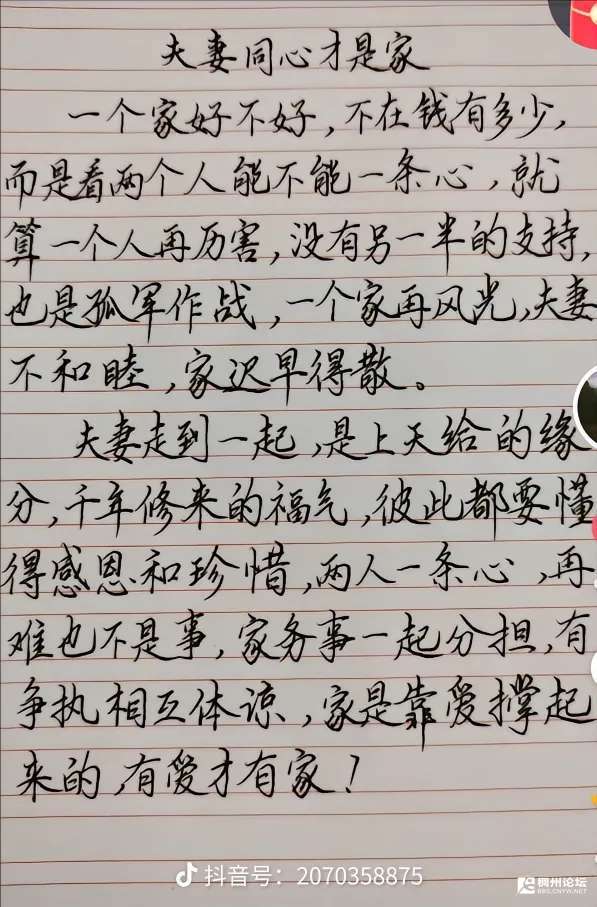 夫妻同心才是家
一个家好不好,不在钱有多少,
而是看两个人能不能一条心,就
算一个人再厉害,没有另一半的支持,
也是孤军作战,一个家再风光,夫妻
不和睦,家迟早得散。
夫妻走到一起,是上天给的缘
分,千年修来的福气,彼此都要懂
得感恩和珍惜,两人一条心,再
难也不是事,家务事一起分担,有
争执相互体谅,家是靠爱撑起
来的,有爱才有家!
抖音号:2070358875
稠州论坛
BBS.CNYW.NET